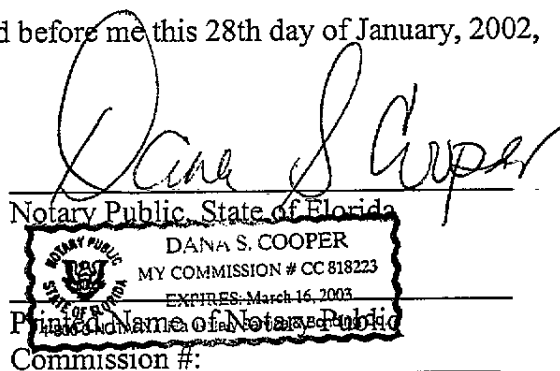 d before me this 28th day of January, 2002,
Dana S Cooper
Notary Public, State of Florida
NOTARY PUBLIC
STATE OF FLORIDA
DANA S. COOPER
MY COMMISSION # CC 818223
EXPIRES: March 16, 2003
Printed Name of Notary Public
Commission #: